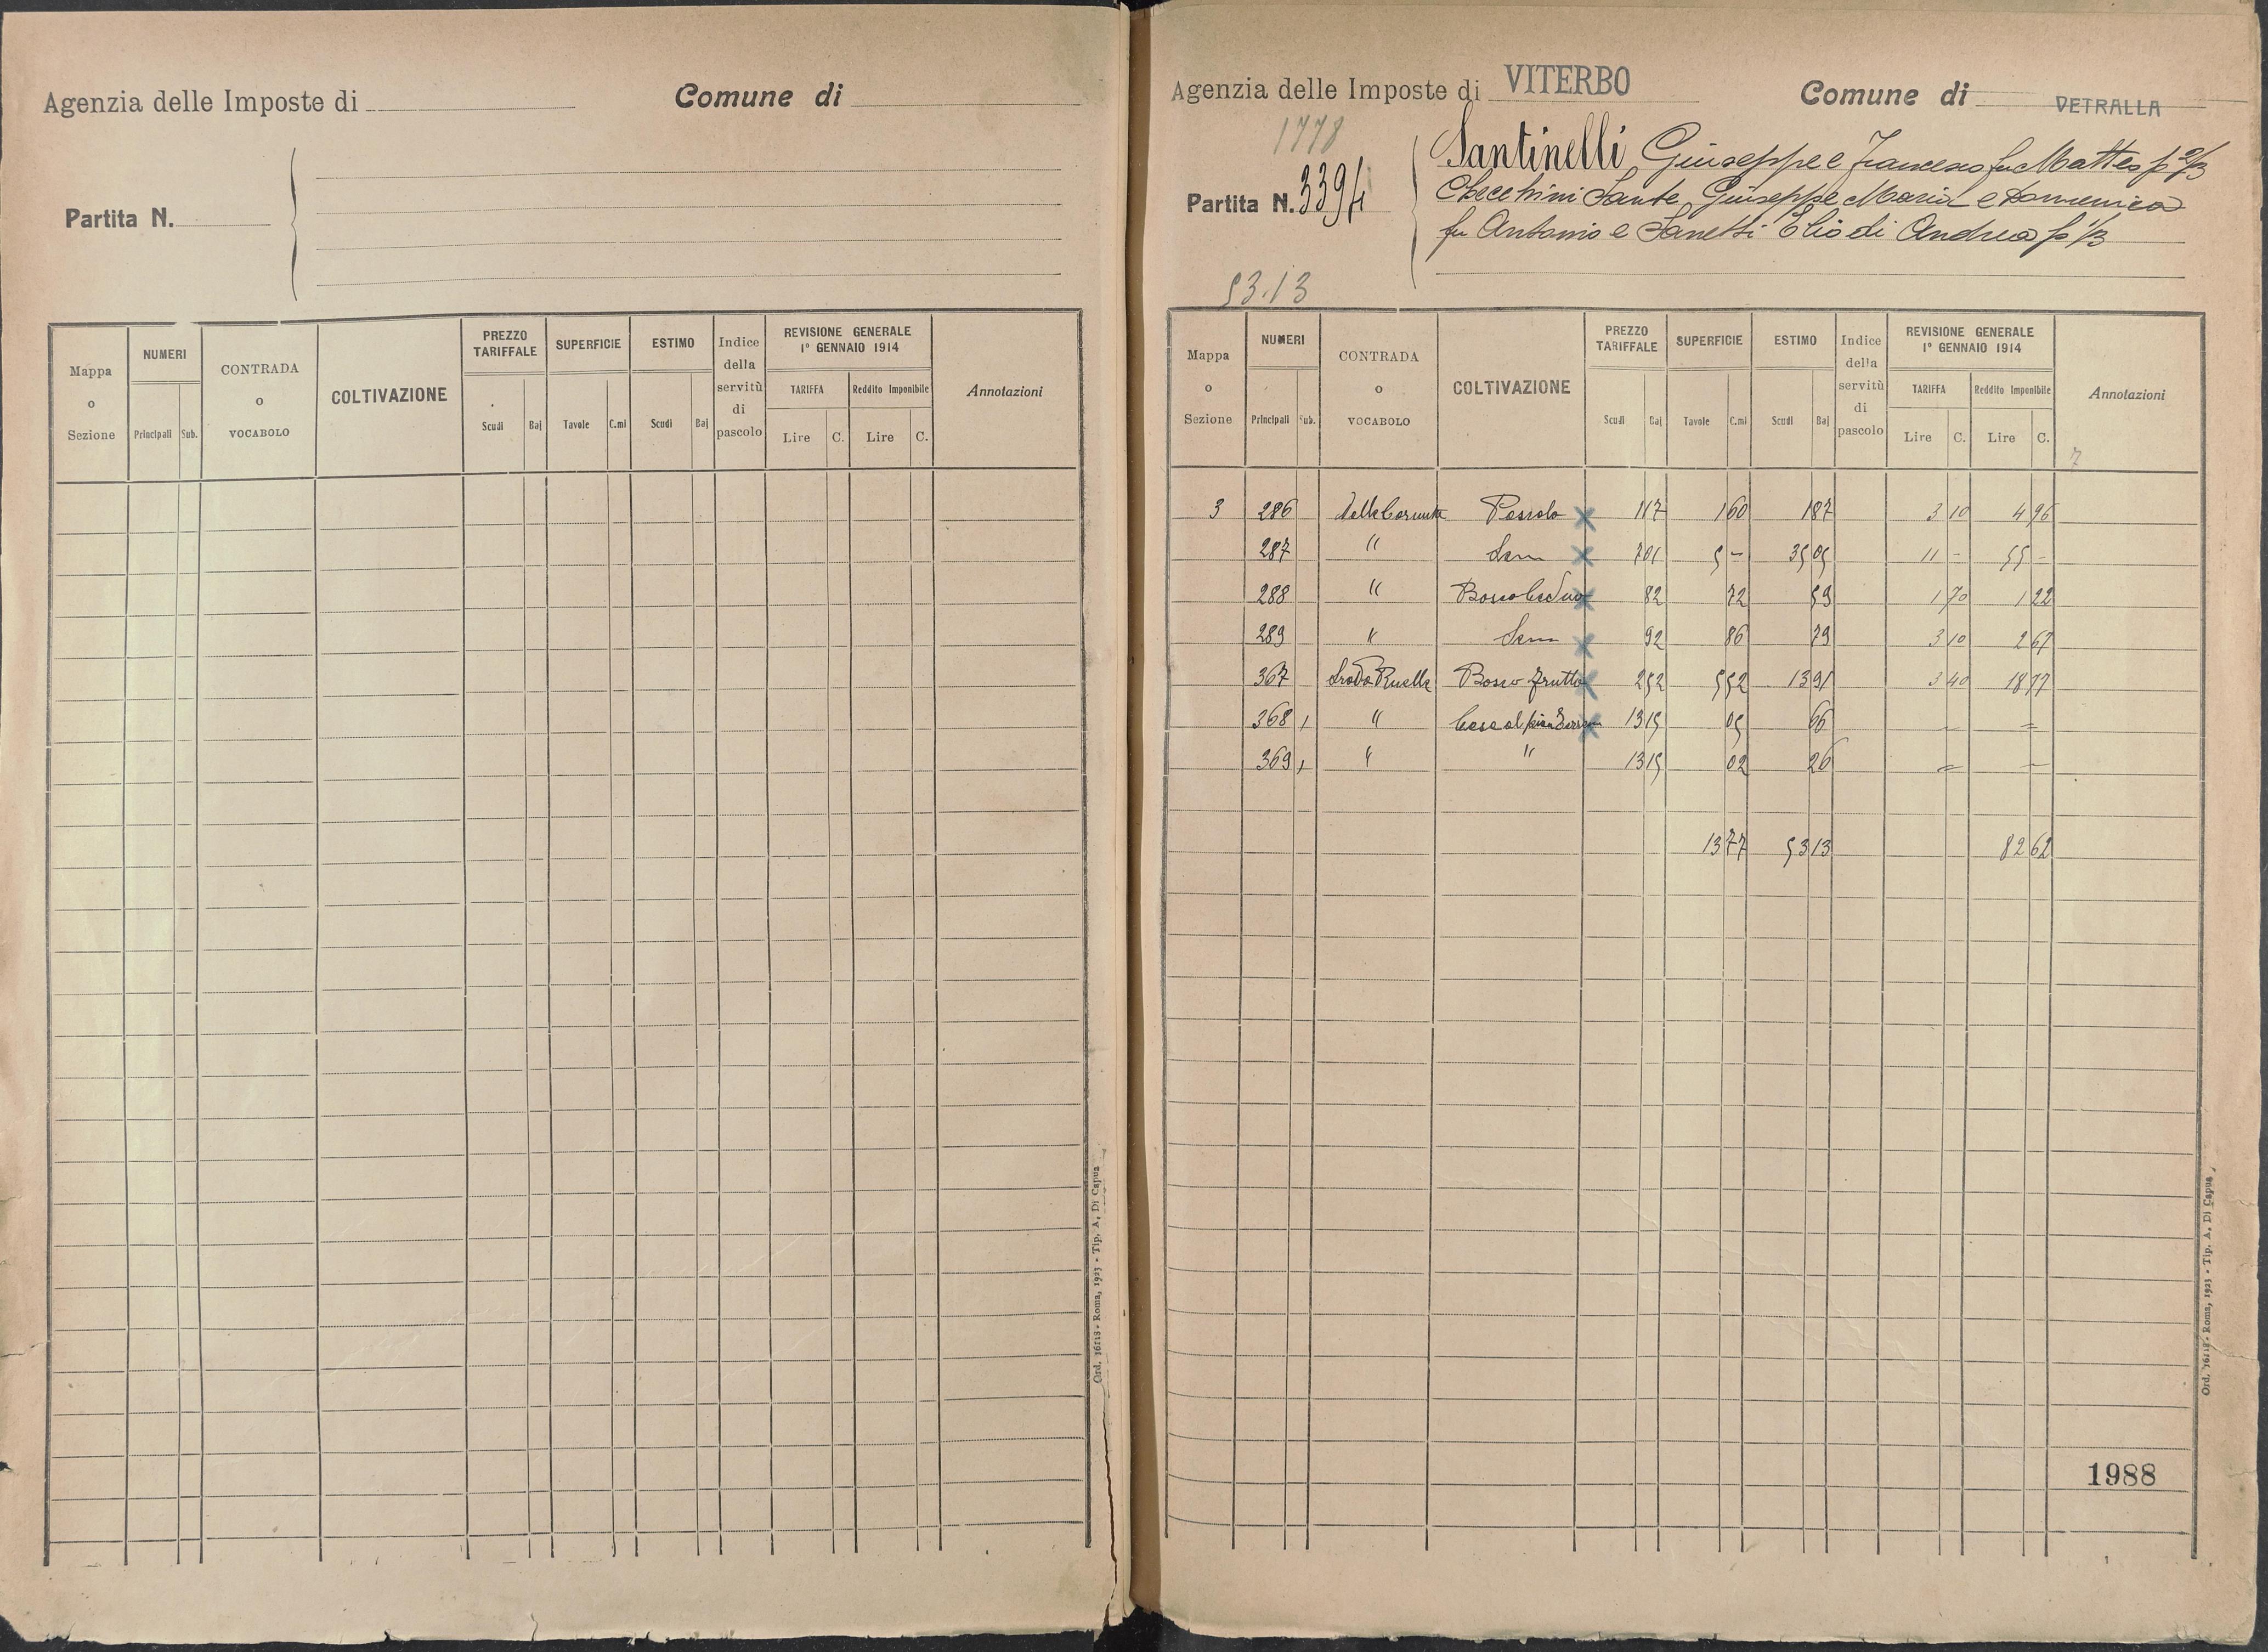 Agenzia delle Imposte di
Comune di
Partita N.
Mappa o Sezione
NUMERI
Principali
Sub.
CONTRADA O VOCABOLO
COLTIVAZIONE
PREZZO TARIFFALE
Scudi
Baj
SUPERFICIE
Tavole
C.mi
ESTIMO
Scudi
Baj
Indice della servitù di pascolo
REVISIONE GENERALE
1° GENNAIO 1914
TARIFFA
Reddito Imponibile
Lire C. Lire C.
Annotazioni
Ord. 16118 - Roma, 1923 - Tip. A. Di Capua
Agenzia delle Imposte di VITERBO
Comune di VETRALLA
1778
Partita N. 3394
Santinelli Giuseppe e Francesco fu Matteo p 2/3
Checchini Sante, Giuseppe, Maria e Domenica
fu Antonio e Sanetti Elio di Andrea p 1/3
53.13
Mappa o Sezione
NUMERI
Principali
Sub.
CONTRADA O VOCABOLO
COLTIVAZIONE
PREZZO TARIFFALE
Scudi
Baj
SUPERFICIE
Tavole
C.mi
ESTIMO
Scudi
Baj
Indice della servitù di pascolo
REVISIONE GENERALE
1° GENNAIO 1914
TARIFFA
Reddito Imponibile
Lire C. Lire C.
Annotazioni
7
3 286 Valle Cornuta Pascolo x 1 17 1 60 1 87 3 10 4 96
287 " Sem x 7 01 5 - 35 05 11 - 55 -
288 " Bosco Ceduo x 82 72 59 1 70 1 22
289 " Sem x 92 86 79 3 10 2 67
367 Bosco Frutto x 2 52 5 52 13 91 3 40 18 77
368 1 " Casa al pian terreno x 13 15 05 66 - =
369 1 " " 13 15 02 26 = -
13 77 53 13 82 62
1988
Ord. 16118 - Roma, 1923 - Tip. A. Di Capua